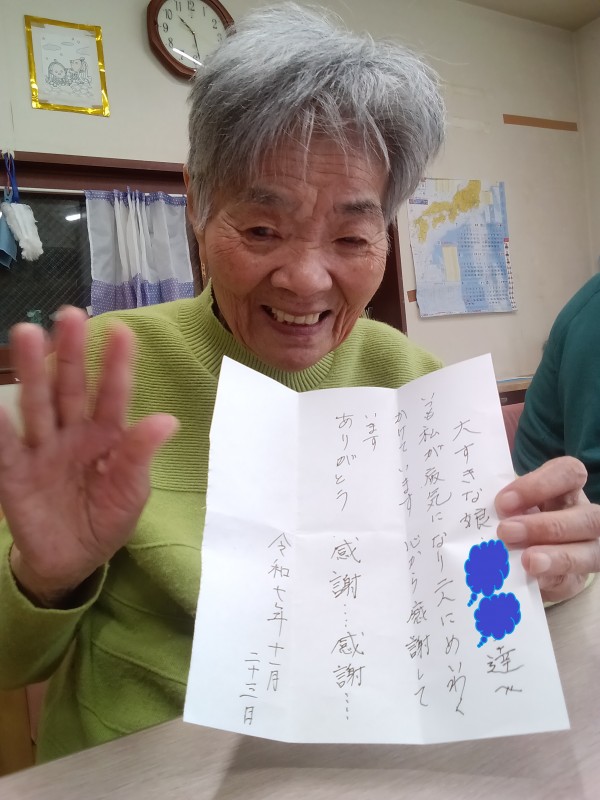 大すきな娘 達へ
いつも私が病気になり二人にめいわく
かけています 心から感謝して
います
ありがとう 感謝…感謝……
令和七年十一月
二十三日